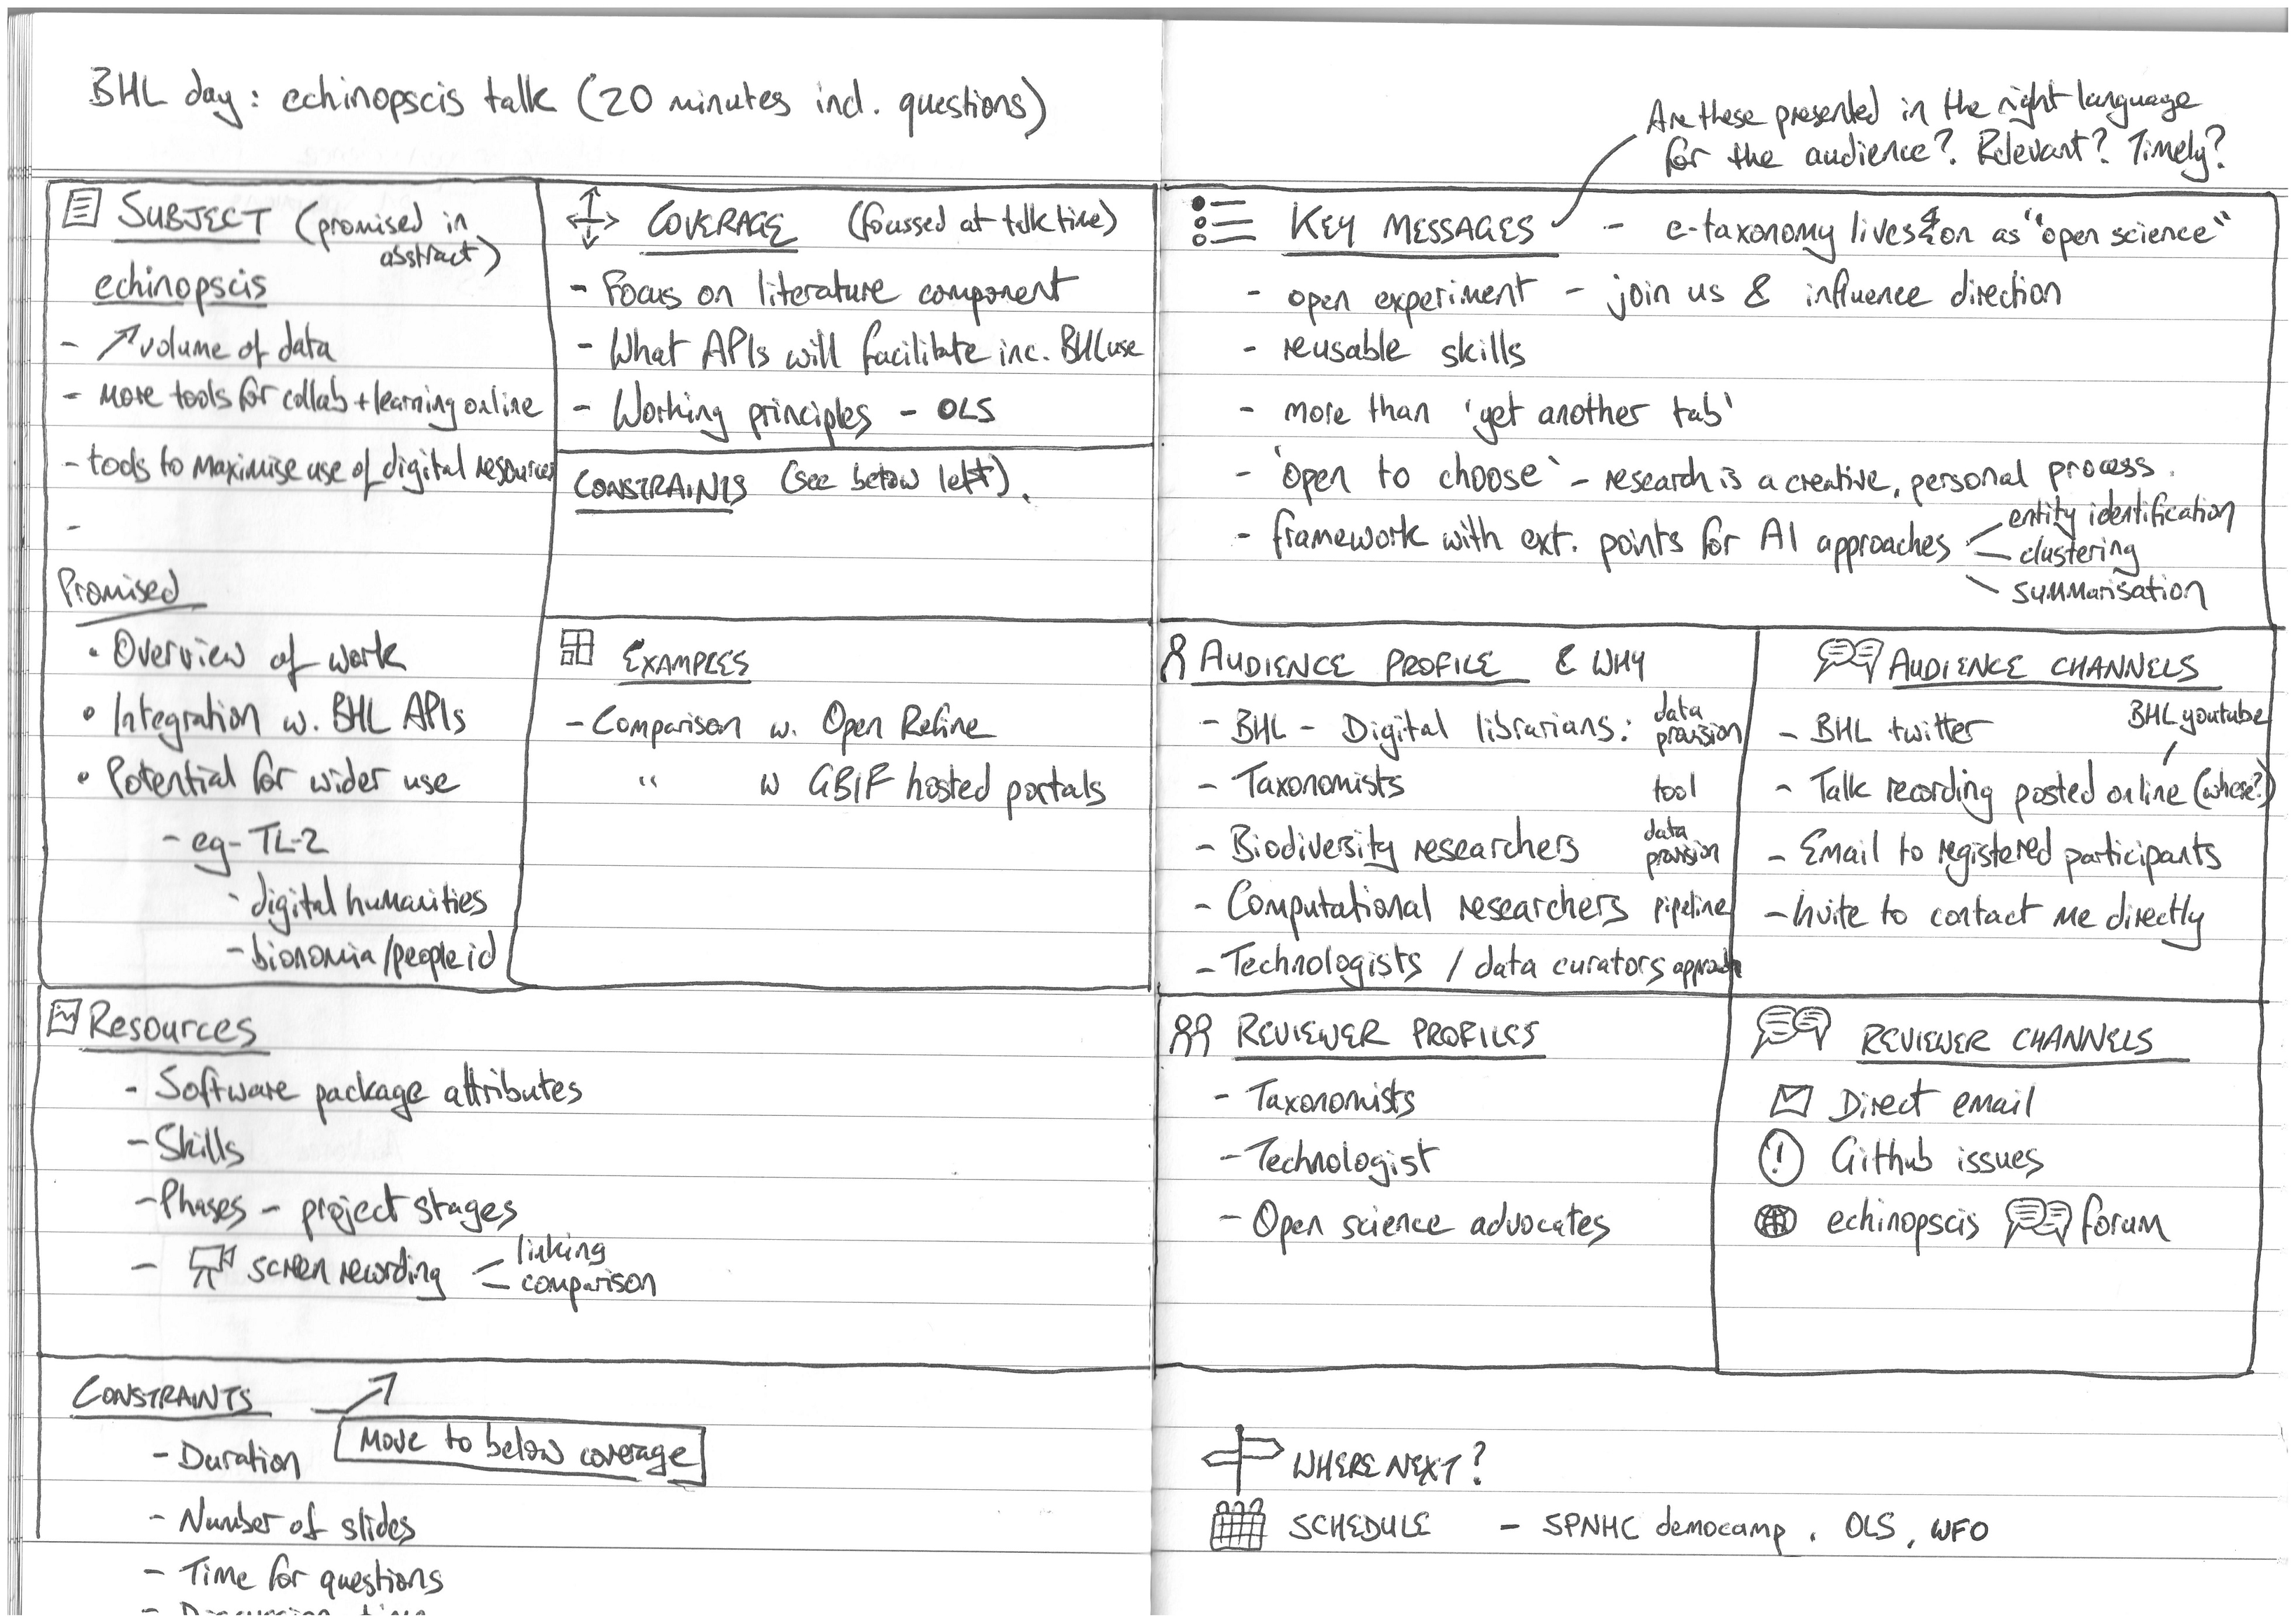 BHL day: echinopscis talk (20 minutes incl. questions)
Are these presented in the right language
for the audience? Relevant? Timely?
SUBJECT (promised in
abstract)
echinopscis
- ↗ volume of data
- More tools for collab + learning online
- tools to maximise use of digital resources
-
Promised
• Overview of work
• Integration w. BHL APIs
• Potential for wider use
- eg - TL-2
- digital humanities
- bionomia/people id
COVERAGE (focussed at talk time)
- Focus on literature component
- What APIs will facilitate inc. BHL use
- Working principles - OLS
CONSTRAINTS (see below left).
EXAMPLES
- Comparison w. Open Refine
" w GBIF hosted portals
Resources
- Software package attributes
- Skills
- Phases - project stages
- screen recording
linking
comparison
CONSTRAINTS
Move to below coverage
- Duration
- Number of slides
- Time for questions
- Discussion time
KEY MESSAGES - e-taxonomy lives on as "open science"
- open experiment - join us & influence direction
- reusable skills
- more than 'yet another tab'
- 'open to choose' - research is a creative, personal process.
- framework with ext. points for AI approaches
entity identification
clustering
summarisation
AUDIENCE PROFILE & WHY
- BHL - Digital librarians: data provision
- Taxonomists tool
- Biodiversity researchers data provision
- Computational researchers pipeline
- Technologists / data curators approach
AUDIENCE CHANNELS
BHL youtube
- BHL twitter
- Talk recording posted online (where?)
- Email to registered participants
- Invite to contact me directly
REVIEWER PROFILES
- Taxonomists
- Technologist
- Open science advocates
REVIEWER CHANNELS
Direct email
Github issues
echinopscis forum
WHERE NEXT?
SCHEDULE - SPNHC democamp, OLS, WFO